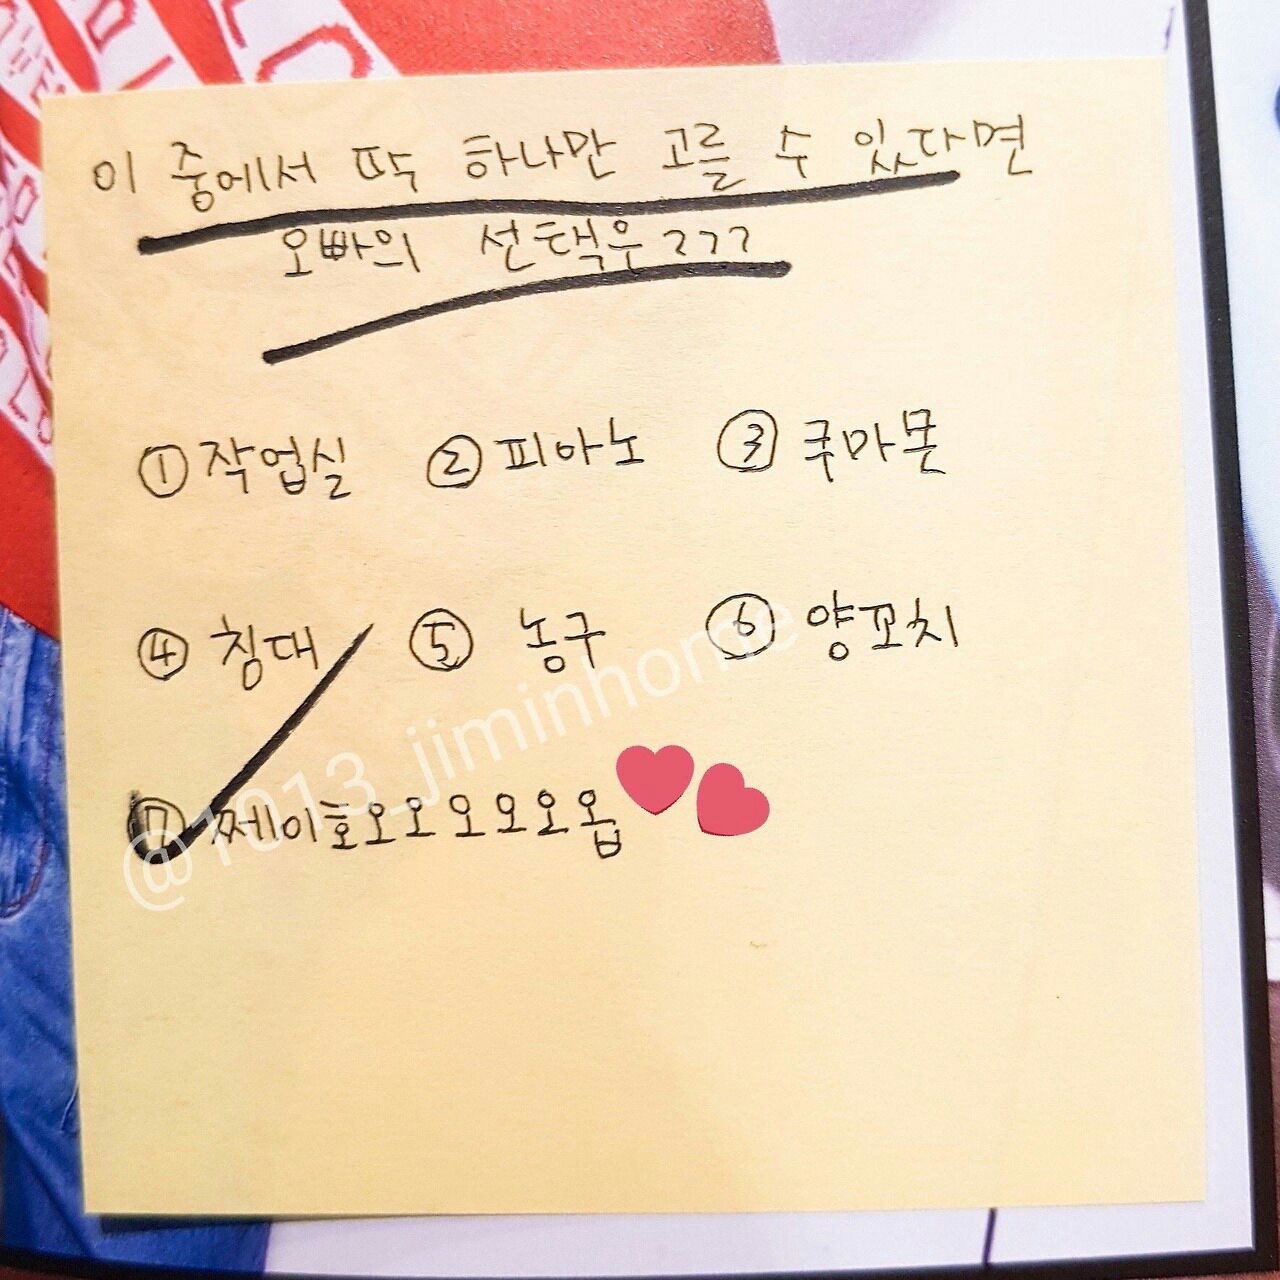 이 중에서 딱 하나만 고를 수 있다면
오빠의 선택은???
① 작업실 ② 피아노 ③ 쿠마몬
④ 침대 ⑤ 농구 ⑥ 양꼬치
⑦ 쩨이호오오오오오옵
@1013_jiminhome